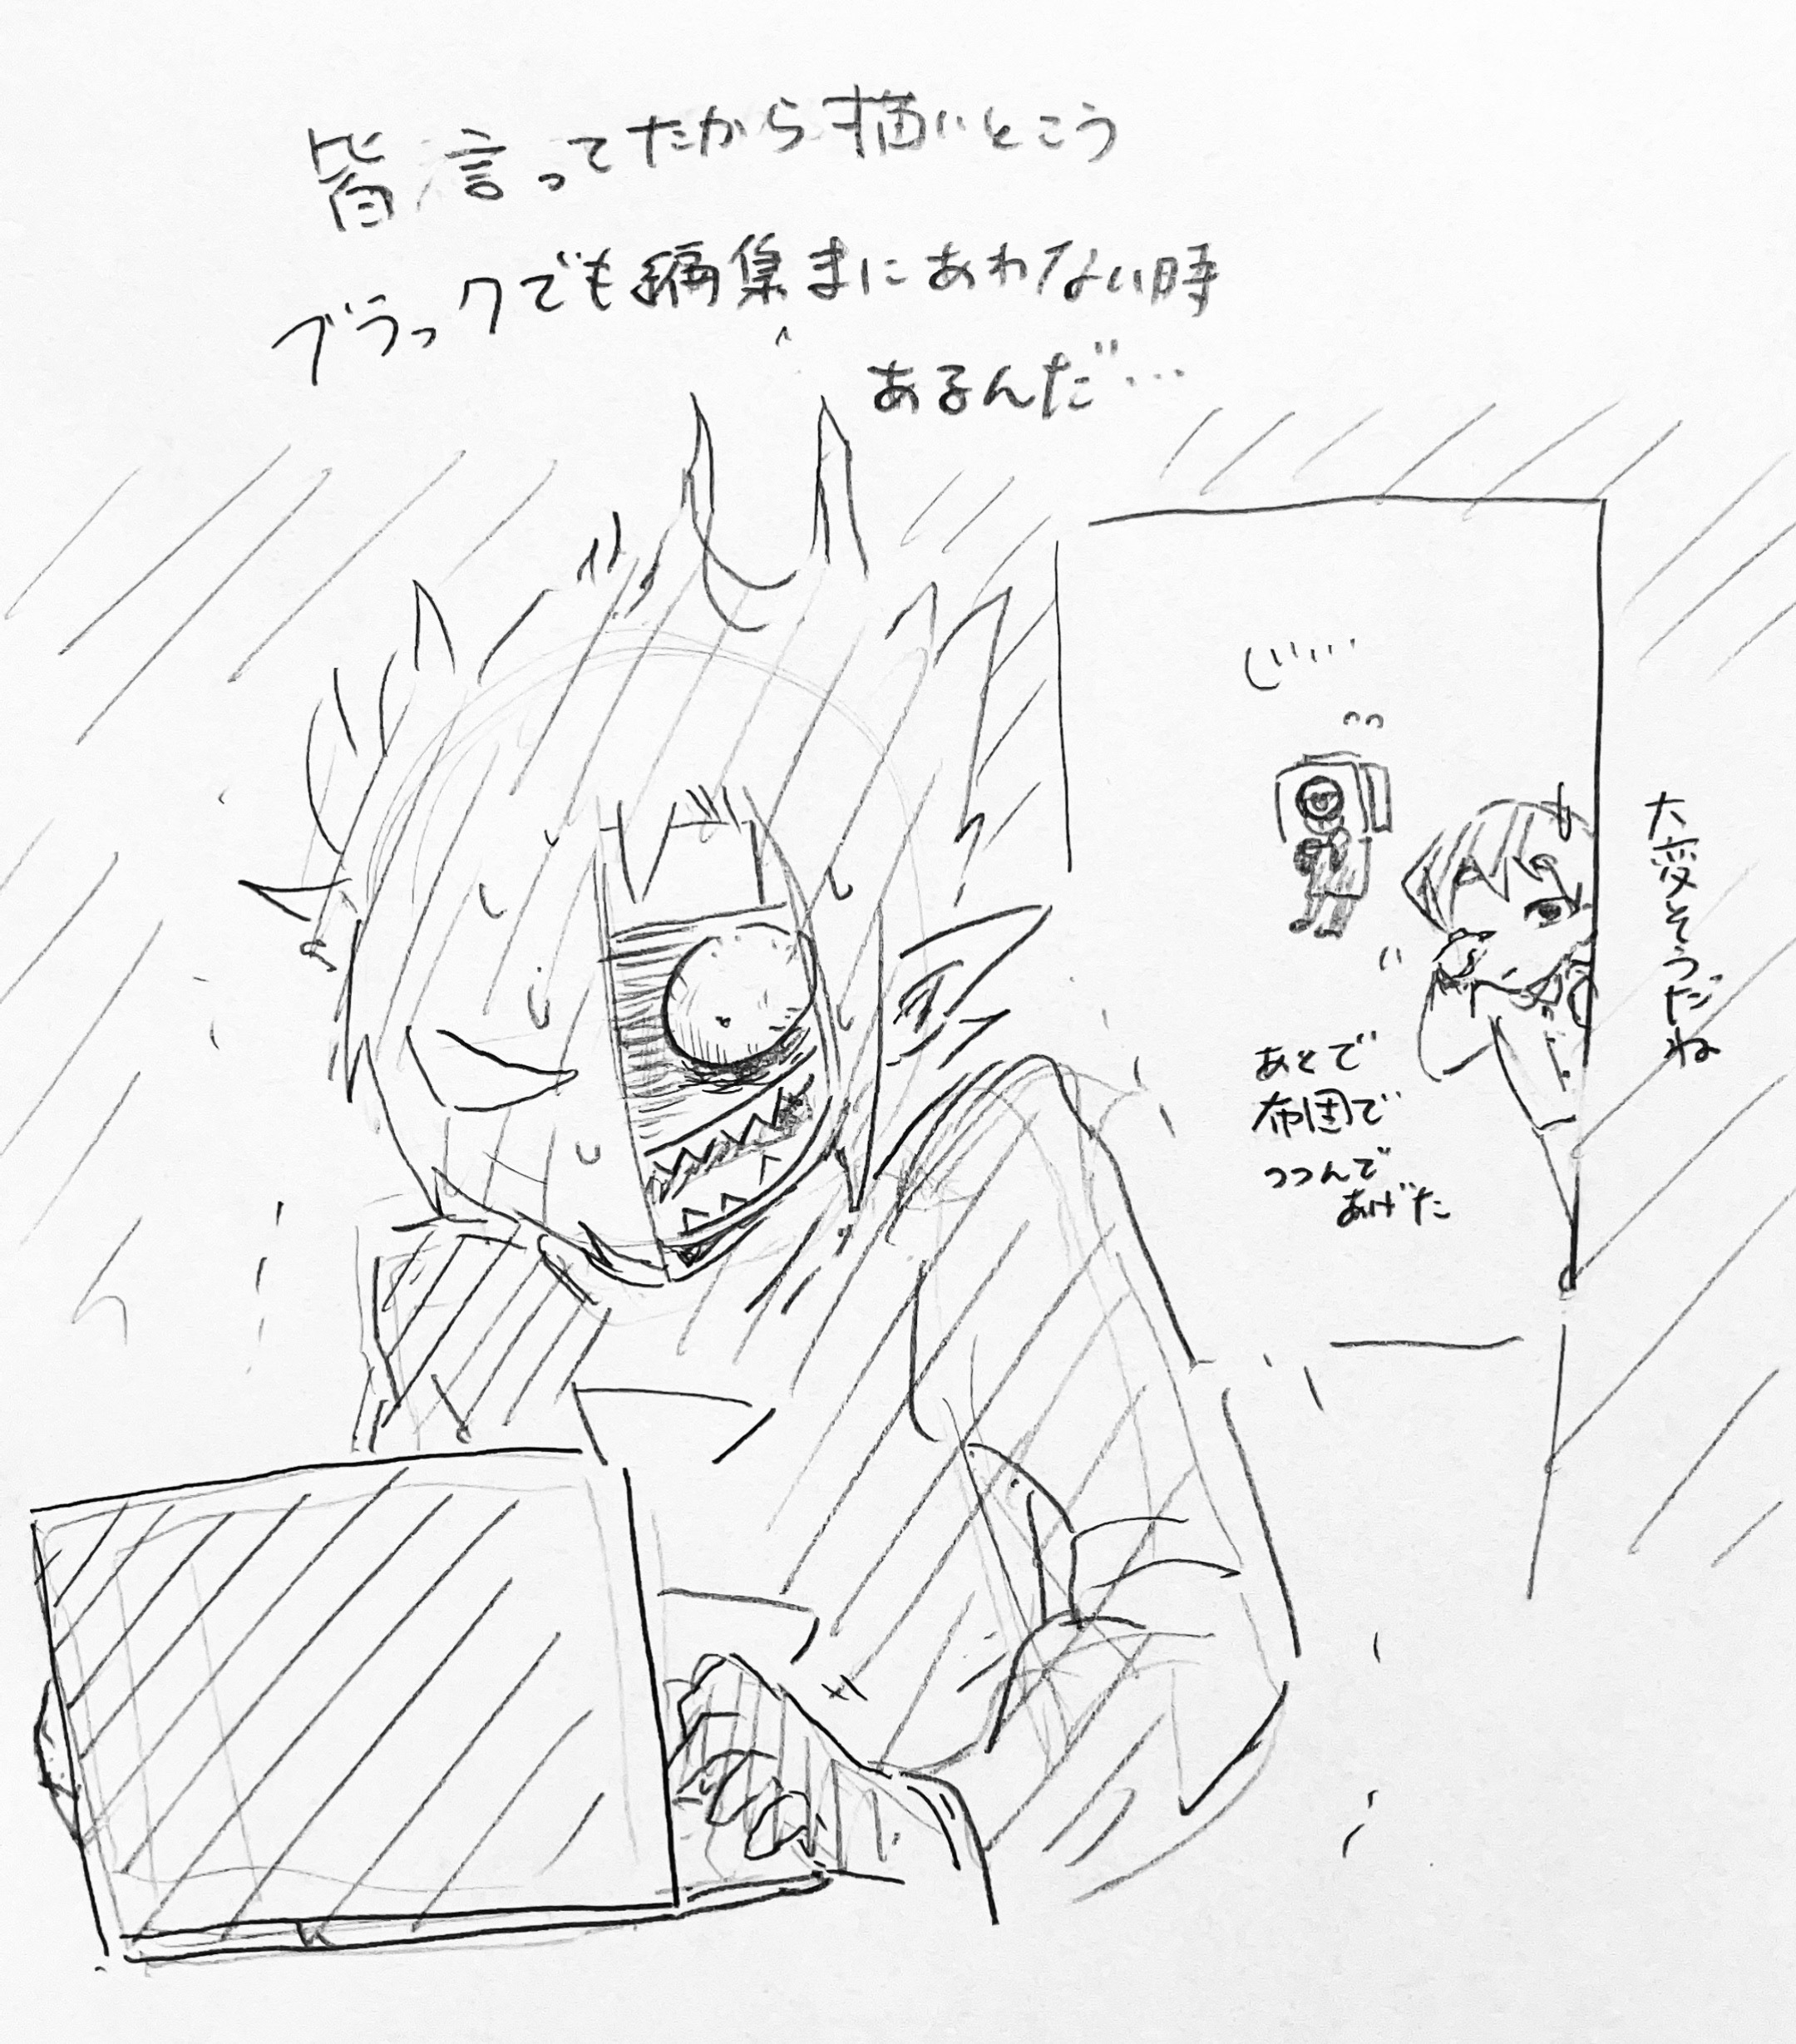 皆言ってたから描いとこう
ブラックでも編集まにあわない時
あるんだ…
じ…
大変そうだね
あとで
布団で
つつんで
あげた